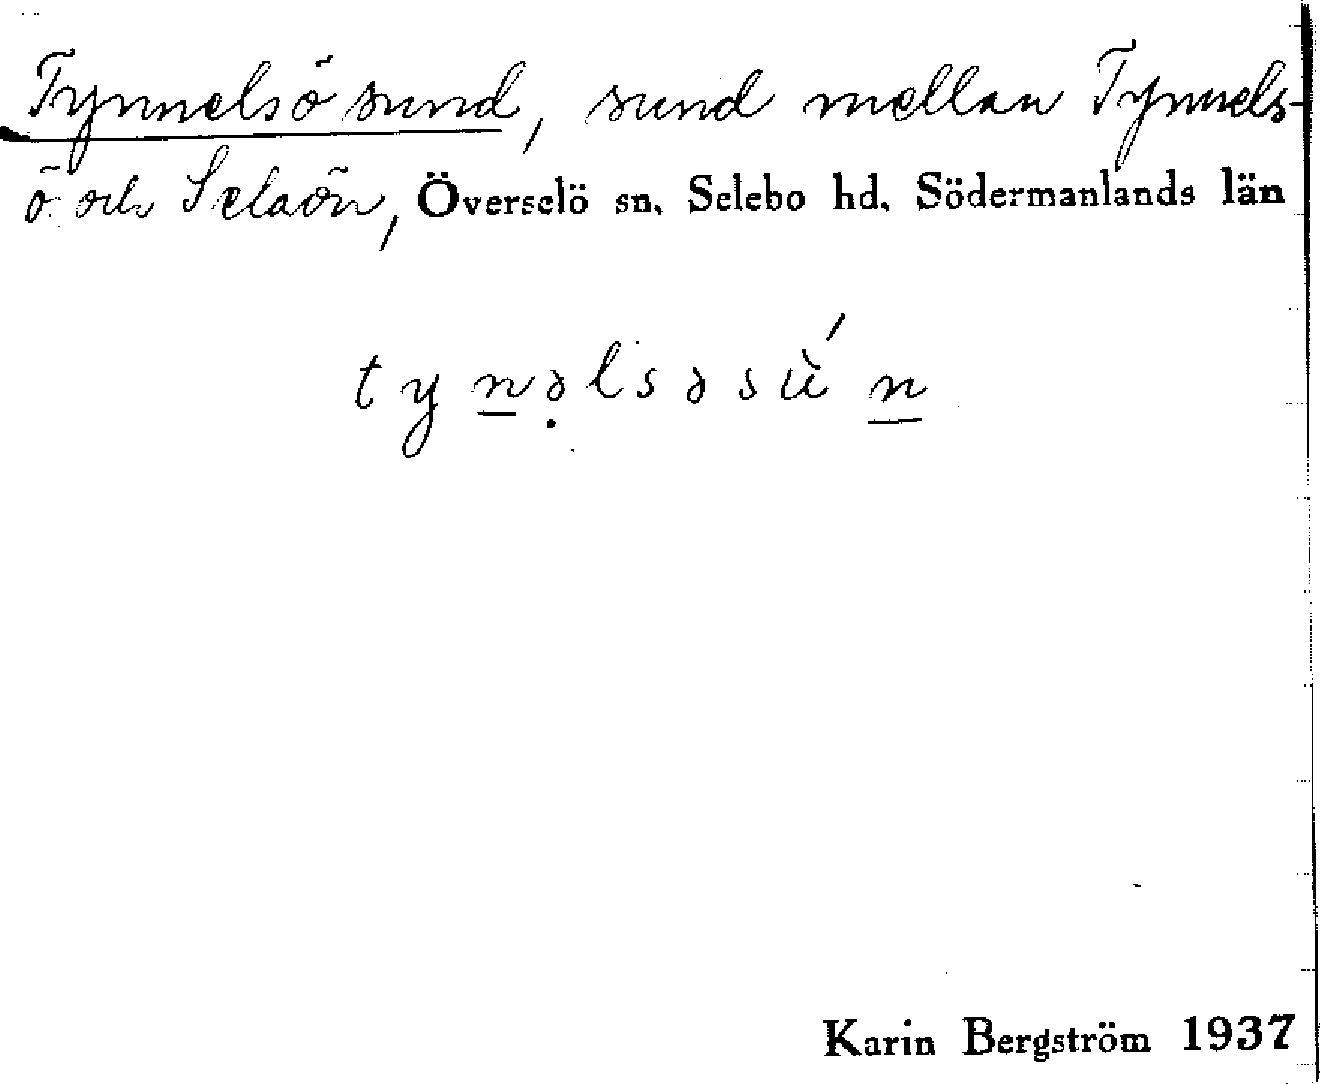 Tynnelsö sund, sund mellan Tynnels-
ö och Selaön, Överselö sn, Selebo hd, Södermanlands län
tyn̲ə̣lsəsù́n̲
Karin Bergström 1937